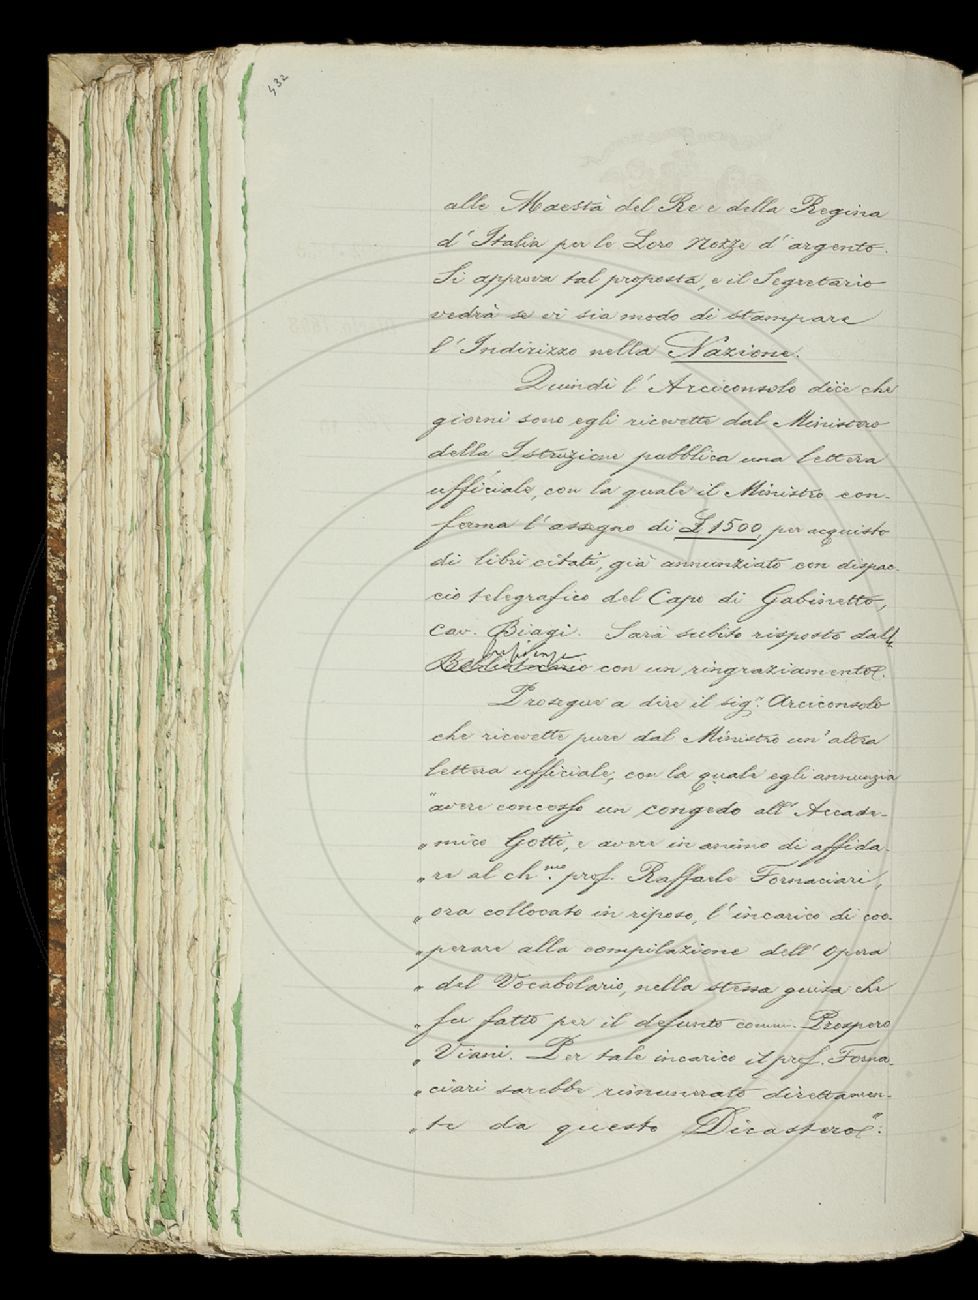 432
alle Maestà del Re e della Regina
d' Italia per le Loro Nozze d' argento.
Si approva tal proposta, e il Segretario
vedrà se vi sia modo di stampare
l' Indirizzo nella Nazione.
Quindi l' Arciconsolo dice che
giorni sono egli ricevette dal Ministero
della Istruzione pubblica una lettera
ufficiale, con la quale il Ministro con-
ferma l' assegno di £ 1500, per acquisto
di libri citati, già annunziato con dispac-
cio telegrafico del Capo di Gabinetto,
Cav. Biagi. Sarà subito risposto dall
Bibliotecario con un ringraziamento.
Prosegue a dire il sig.r Arciconsolo
che ricevette pure dal Ministro un' altra
lettera ufficiale, con la quale egli annunzia
"avere concesso un congedo all' Accade-
„ mico Gotti, e avere in animo di affida-
„ re al ch.mo prof. Raffaele Fornaciari,
„ ora collocato in riposo, l' incarico di coo-
„ perare alla compilazione dell' opera
„ del Vocabolario, nella stessa guisa che
„ fu fatto per il defunto comm. Prospero
„ Viani. Per tale incarico il prof. Forna-
„ ciari sarebbe rimunerato direttamen-
„ te da questo Dicastero".